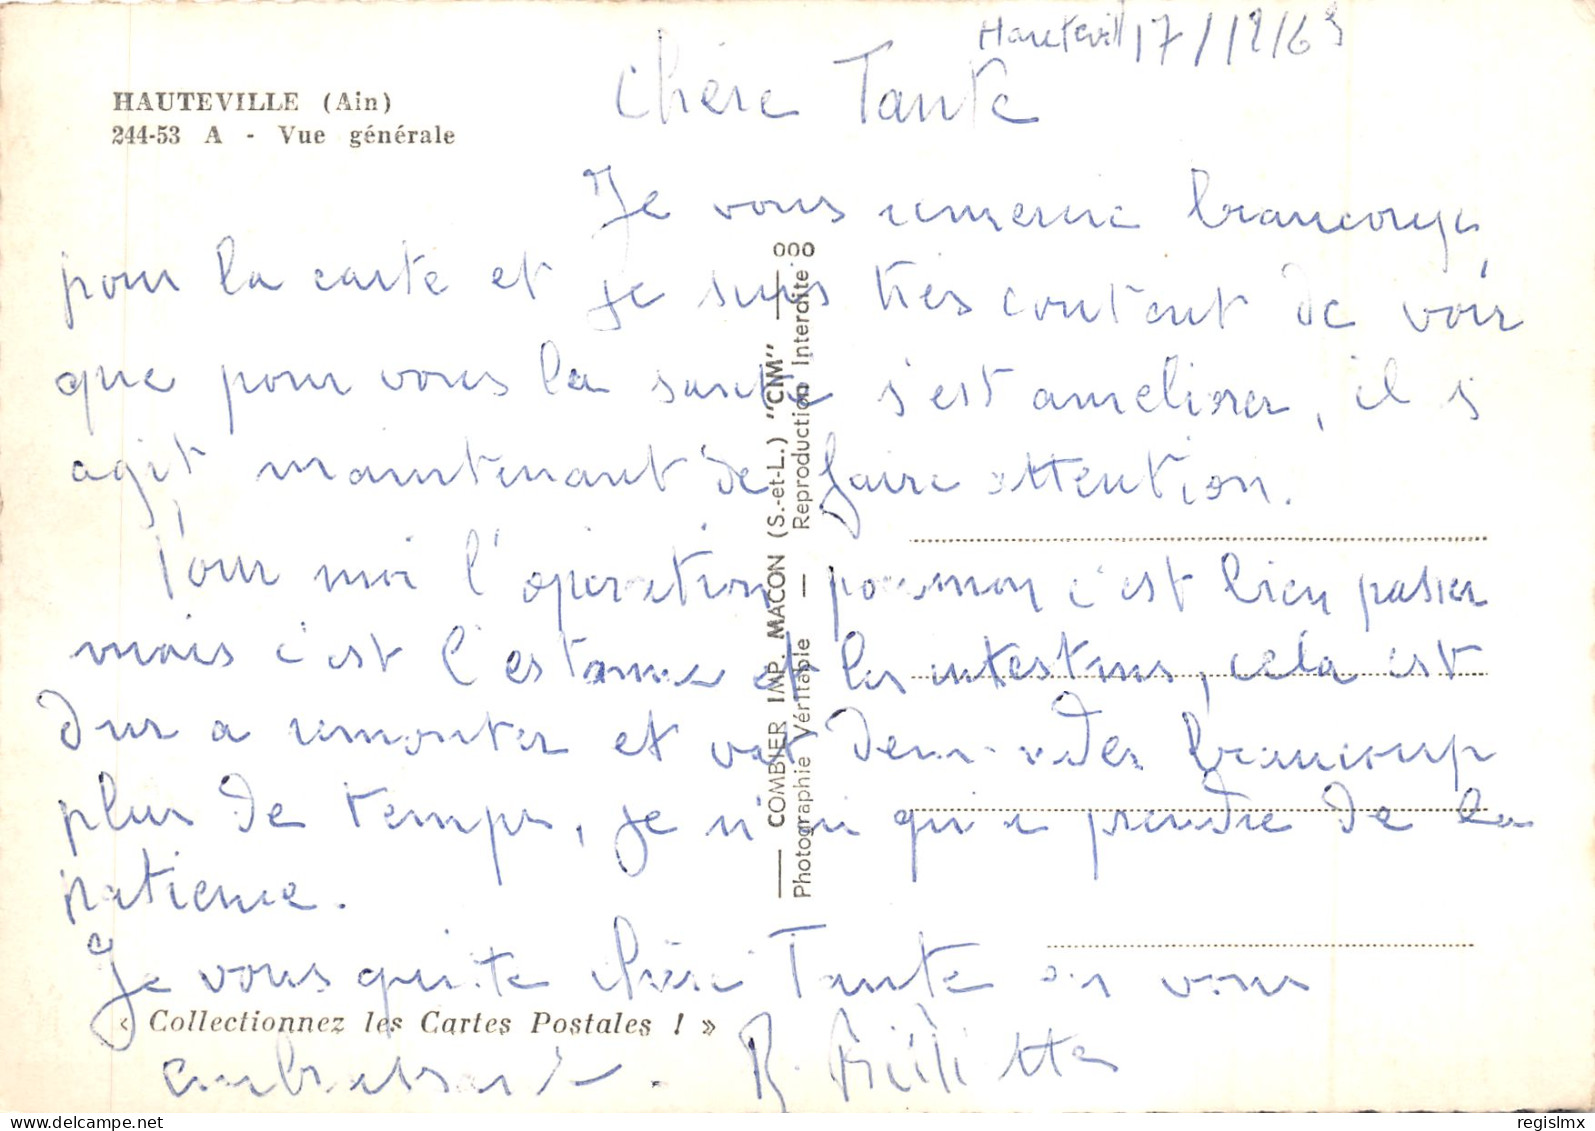 Hautevill 17/12/63
HAUTEVILLE (Ain)
244-53 A - Vue générale
Chère Tante
Je vous remercie beaucoup
pour la carte et je suis très content de voir
que pour vous la santé s'est ameliorer, il s
agit maintenant de faire attention.
Pour moi l'operation poumon c'est bien passer
mais c'est l'estomac et les intestins, cela est
dur a remonter et vat demander beaucoup
plus de temps, je n'ai qu'a prendre de la
patience.
Je vous quitte chère Tante en vous
embrassant. R.
« Collectionnez les Cartes Postales ! »
COMBIER IMP. MACON (S.-et-L.) "CIM" — ooo
Photographie Véritable — Reproduction Interdite
regislmx